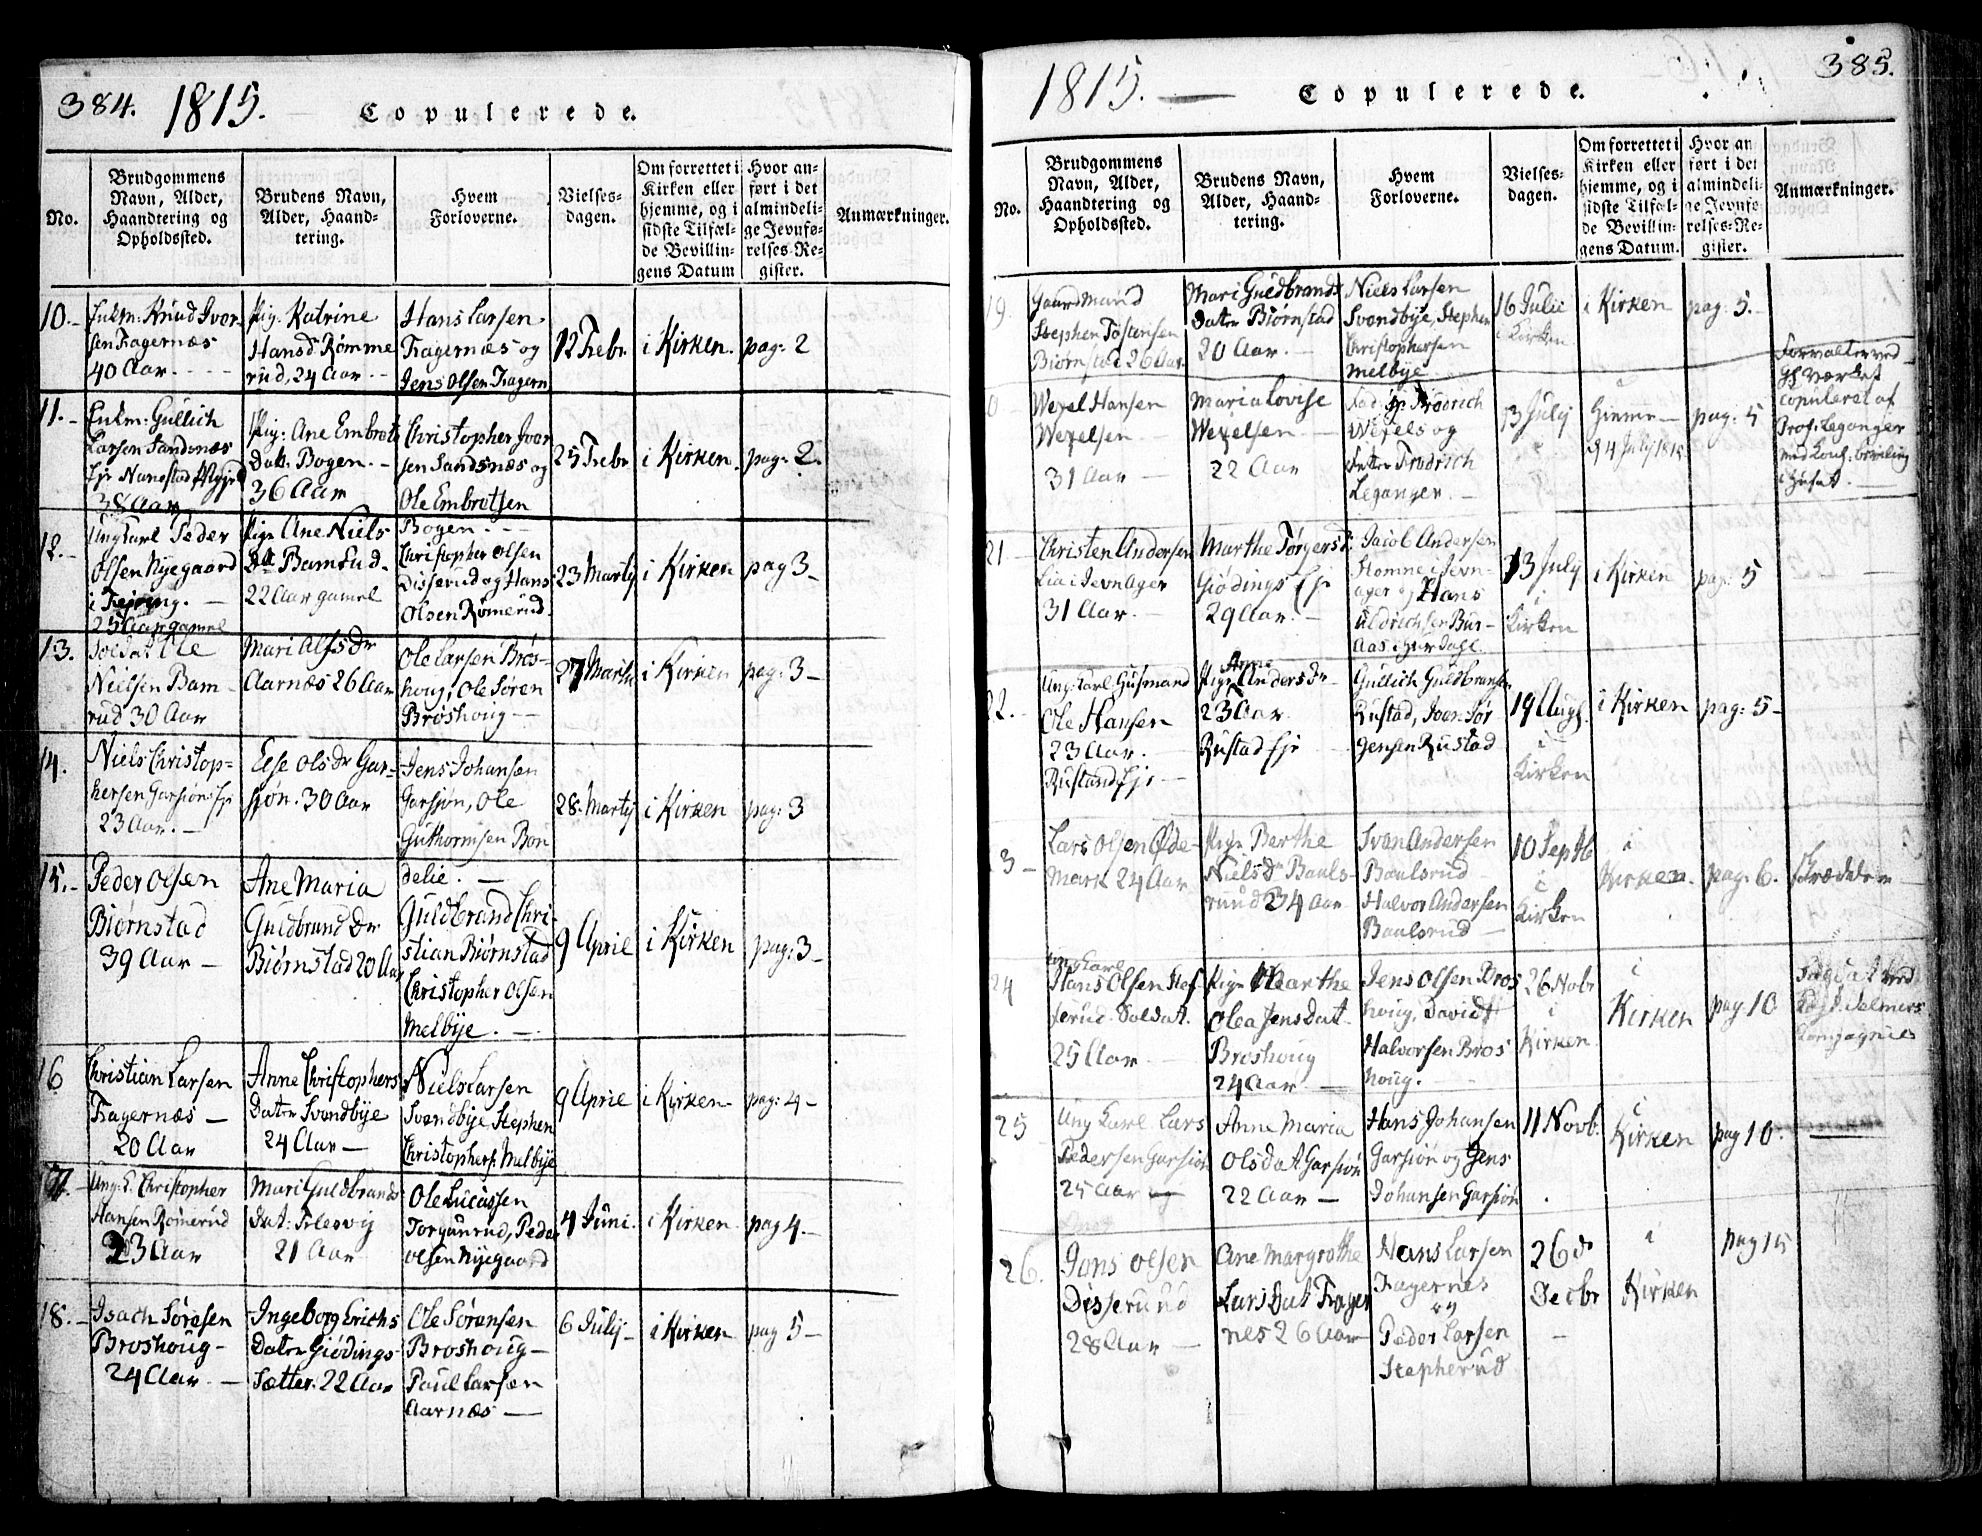 384. 1815. Copulerede.
No.
Brudgommens
Navn, Alder,
Haandtering og
Opholdssted.
Brudens Navn,
Alder, Haand-
tering.
Hvem
Forloverne.
Vielses-
dagen.
Om forrettet i
Kirken eller
hjemme, og i
sidste Tilfæl-
de Bevillin-
gens Datum
Hvor an-
ført i det
almindeli-
ge Jevnfø-
relses-Re-
gister.
Anmærkninger.
10.-
Enkm: Knud Ivor
sen Fragernæs
40 Aar
Pig: Katrine
Hansd: Rømme
rud, 24 Aar
Hans Larsen
Fragernæs og
Jens Olsen Fragern
12 Febr.
i Kirken.
pag: 2
11.-
Enkm: Gullich
Larsen Sandsnæs
38 Aar
Pig: Ane Embrets
Datt: Bogen.
36 Aar
Christopher Ivor
sen Sandsnæs og
Ole Embretsen
Bogen
25 Febr
i Kirken.
pag: 2.
12.-
Ung Karl Peder
Olsen Nyegaard
i
25 Aar gamel
Pige Ane Niels
Dtr Bamrud.
22 Aar gamel
Christopher Olsen
Disserud og Hans
Olsen Rømerud.
23 Marty
i Kirken
pag 3-
13.
Soldat Ole
Nielsen Bam-
rud 30 Aar
Mari Alfs Dr
Aarnæs 26 Aar
Ole Larsen Brøs-
houg, Ole Søren
Brøshoug
27 Marty
i Kirken
pag: 3-
14.
Niels Christop-
hersen Garsiøn: Eje
23 Aar.
Else Ols Dr Gar-
sjøn. 30 Aar
Jens Johansen
Garsjøn, Ole
Guthormsen Bon
delie.
28. Marty
i Kirken
pag: 3
15.-
Peder Olsen
Biørnstad
39 Aar
Ane Maria
Guldbrand Dr
Biørnstad 20 Aar
Guldbrand Chri-
stian Biørnstad
Christopher Olsen
Melbye.
9 April
i Kirken
pag: 3-
16
Christian Larsen
Fragernæs
20 Aar
Anne Christophers
Dater Svendbye
24 Aar
Niels Larsen
Svendbye Stephen
Christophers: Melbye
9 April
i Kirken
pag: 4-
17.
Ung: K. Christopher
Hansen Rømerud
23 Aar
Mari Guldbrands
Dat:
21 Aar
Ole Lucassen
Torgunrud, Peder
Olsen Nyegaard
4 Juni.
i Kirken
pag 4.
18.-
Isach Søresen
Broshoug
24 Aar.
Ingeborg Erichs
Dater Giødings-
Sætter. 22 Aar
Ole Sørensen
Broshoug
Poul Larsen
Aarnæs
6 July-
i Kirken
pag 5-
1815. Copulerede. 385.
No.
Brudgommens
Navn, Alder,
Haandtering og
Opholdssted.
Brudens Navn,
Alder, Haand-
tering.
Hvem
Forloverne.
Vielses-
dagen.
Om forrettet i
Kirken eller
hjemme, og i
sidste Tilfæl-
de Bevillin-
gens Datum.
Hvor an
ført i det
almindeli-
ge Jevnfø-
relses-Re-
gister.
Anmærkninger.
19.
Gaardmand
Stephen Tostensen
Biørnstad 26 Aar
Mari Guldbrands
Dater Biørnstad
20 Aar.
Niels Larsen
Svendbye, Stephen
Christophersen
Melbye
16 Julie
i Kirken
i Kirken
pag: 5.
Wexel Hansen
Wexelsen
31 Aar
Maria Lovise
Wexelsen
22 Aar
Frodrich
Wexels og
Frodrich
Leganger.
13 July
Hiemme
pag: 5
Forvalter ved
Værket
Copuleret af
Prof: Leganger
med Bevilling
i Huset.
21
Christen Andersen
Lia i Jevnager
31 Aar.
Marthe Torgersd:
Giødings Eje
29 Aar.
Jacob Andersen
Homme i Jevn-
ager og Hans
Uldrichsen Bur-
Aas i
13 July
i
Kirken
i Kirken
pag: 5
22.-
Ung: Karl Husmand
Ole Hansen
23 Aar.
Rustand Eje
Pige Anne Anders Dr
23 Aar
Rustad Eje
Gullich Guldbransen
Rustad, Iver Jør
gensen Rustad
19 Aug.
i
Kirken
i Kirken
pag: 5-
3-
Lars Olsen Øde-
Mark 24 Aar
Pige Berthe
Niels Dr Bauls-
ruud 34 Aar
Sven Andersen
Baulsrud
Halvor Andersen
Baulsrud
10 Septb
i
Kirken
i
Kirken.
pag: 6.
24
Ung Karl
Hans Olsen Stef
ferud. Soldat.
25 Aar
Pige Marthe
Olea Jens Dat.
Broshoug
24 Aar
Jens Olsen Bros
houg, David
Halvorsen Bros
houg.
26 Nobr
i
Kirken
i
Kirken
pag 10
Soldat ved
Selmers
Compagnie
25
Ung Karl Lars
Pedersen Garsiøn
25 Aar
Anne Maria
Olsdat Garsiøn
22 Aar
Hans Johansen
Garsiøn og Jens
Johansen Garsiøn
11 Novb.
i
Kirken
pag 10.
26.
Jens Olsen
Disserud
28 Aar
Ane Margrethe
Lars Dat Frager
nes 26 Aar
Hans Larsen
Fragernes
og
Peder Larsen
Stepherud
26 d
Decbr
i
Kirken
pag 15